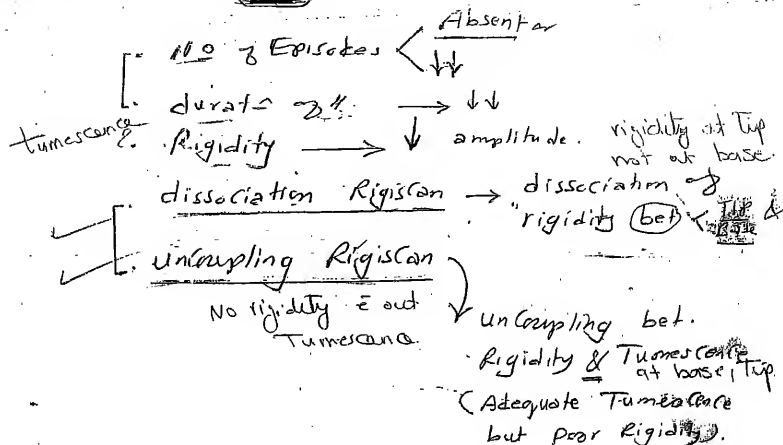 No of Episodes < Absent or
↓↓
durat= of " → ↓↓
tumescence & Rigidity → ↓ amplitude. rigidity at Tip
not at base.
dissociation Rigiscan → dissociation of
"rigidity bet < Tip &
Base
uncoupling Rigiscan
No rigidity ē out
Tumescence
uncoupling bet.
Rigidity & Tumescence
at base, Tip
(Adequate Tumescence
but poor Rigidity).